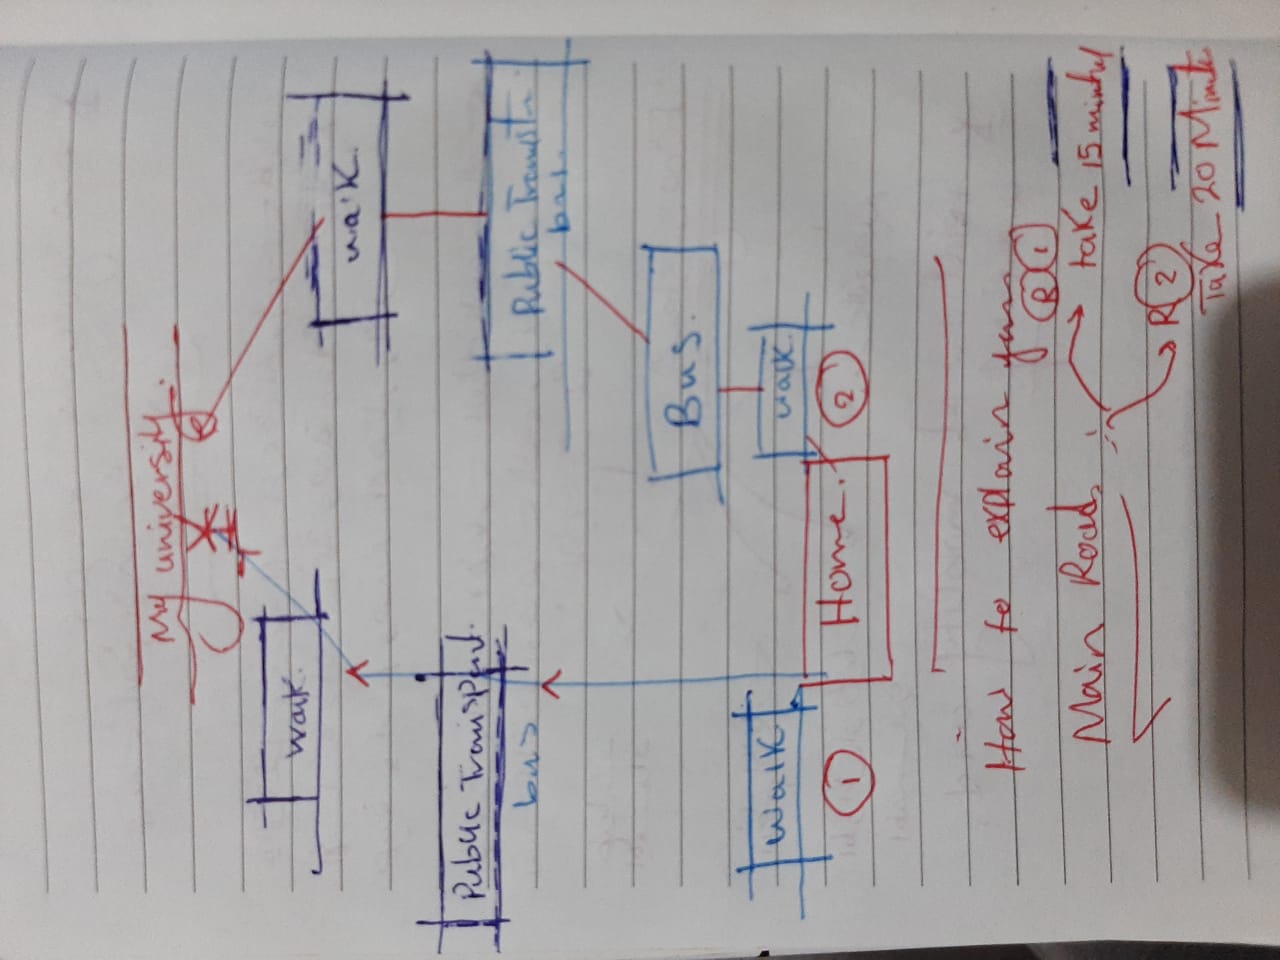 My university.
walk.
walk.
Public Transport.
bus
Public Transtn
bus.
Bus.
walk
walk.
1
Home.
2
How to explain your
R 1
Main Road
take 15 minutes
R 2
Take 20 Minute